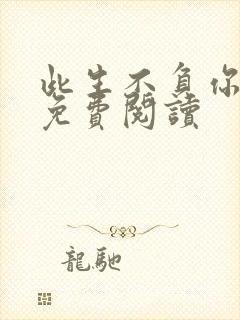 此生不負你
免費閱讀
龍馳